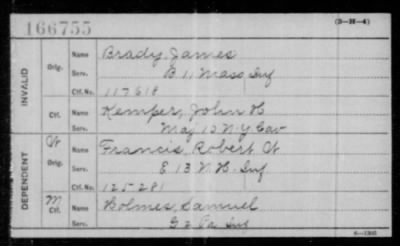 166755
(3-H-4)
INVALID
Orig. Name Brady, James
Serv. B 11 Mass Inf
Ctf. No. 117618
Ctf. Name Kemper, John H
Serv. Maj 10 N.Y. Cav
DEPENDENT
W Orig. Name Francis, Robert W
Serv. E 13 N.H. Inf
Ctf. No. 125281
M Ctf. Name Holmes, Samuel
Serv. G 2 Pa Inf